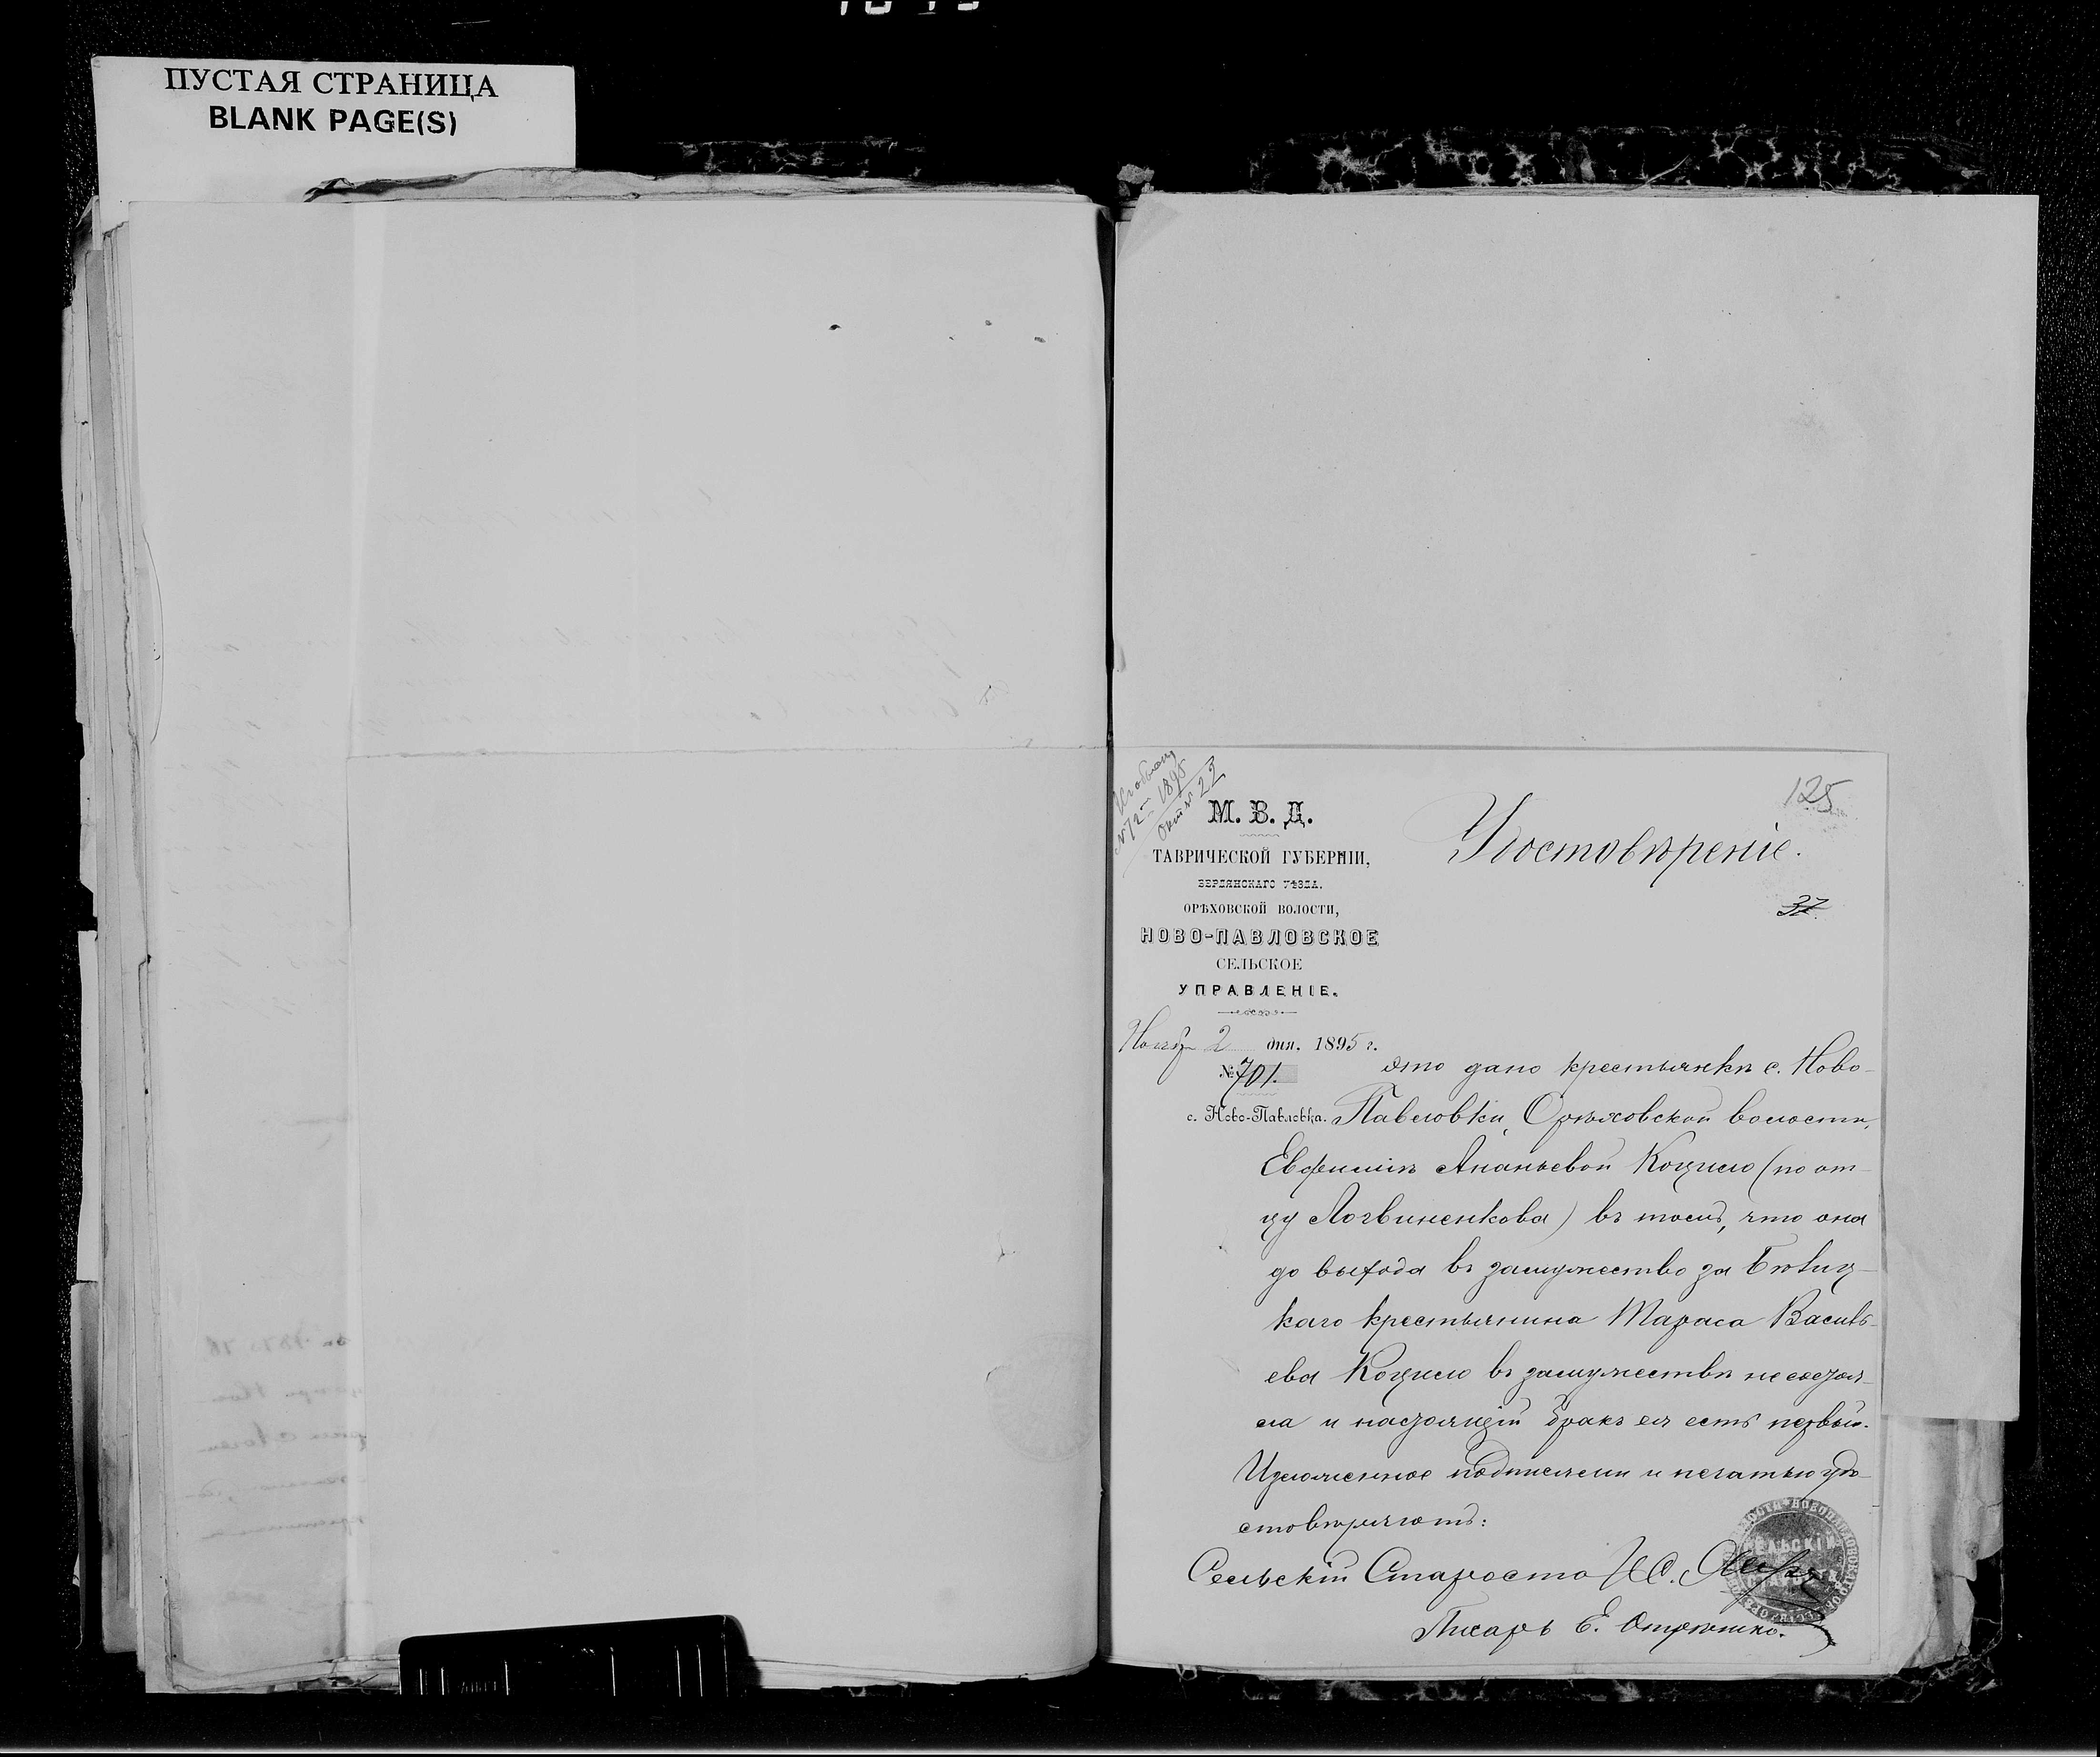 ПУСТАЯ СТРАНИЦА
BLANK PAGE(S)
№ 12 1895
Окт № 23
М. В. Д.
ТАВРИЧЕСКОЙ ГУБЕРНІИ,
БЕРДЯНСКАГО УѢЗДА.
ОРѢХОВСКОЙ ВОЛОСТИ,
НОВО-ПАВЛОВСКОЕ
СЕЛЬСКОЕ
УПРАВЛЕНІЕ.
Ноябр 2 дня. 1895 г.
№ 701.
с. Ново-Павловка.
125
Удостовѣреніе.
37
дано крестьянкѣ с. Ново-
Павловки, Орѣховской волости,
Евфиміи Ананьевой Коцило (по от-
цу Логвиненкова) въ томъ, что она
до выхода въ замужество за
каго крестьянина Тараса Василь-
ева Коцило въ замужествѣ не состоя-
ла и настоящій бракъ ея есть первый.
Изложенное подписями и печатью удо-
стовѣряютъ:
Сельскій Староста
Писарь Е.
СЕЛЬСКІЙ